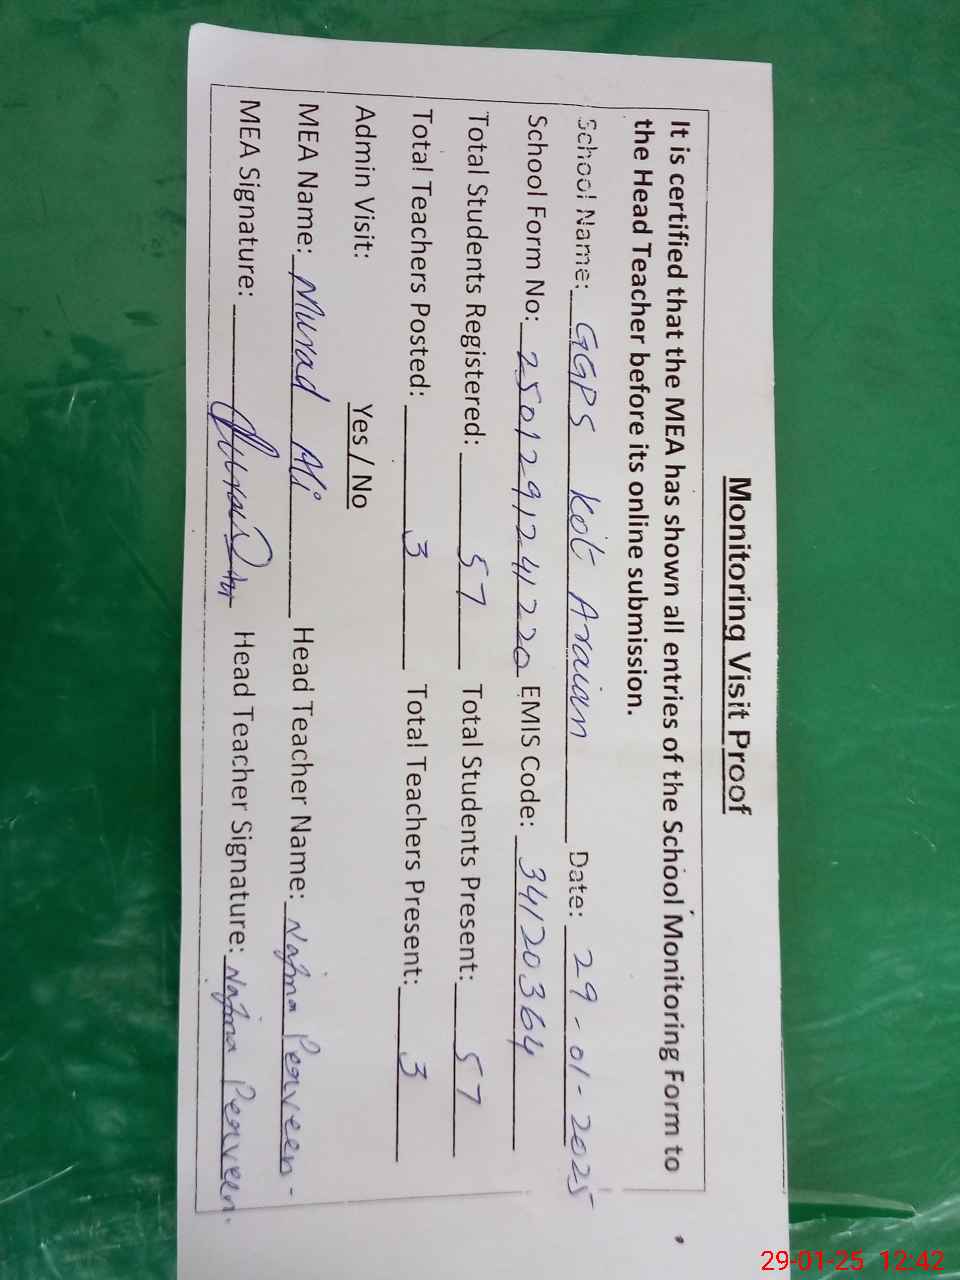 Monitoring Visit Proof
It is certified that the MEA has shown all entries of the School Monitoring Form to
the Head Teacher before its online submission.
School Name: GGPS Kot Araian Date: 29-01-2025
School Form No: 2501291241220 EMIS Code: 34120364
Total Students Registered: 57 Total Students Present: 57
Total Teachers Posted: 3 Total Teachers Present: 3
Admin Visit: Yes / No
MEA Name: Murad Ali Head Teacher Name: Najma Perveen
MEA Signature: Head Teacher Signature: Najma Perveen.
29-01-25 12:42